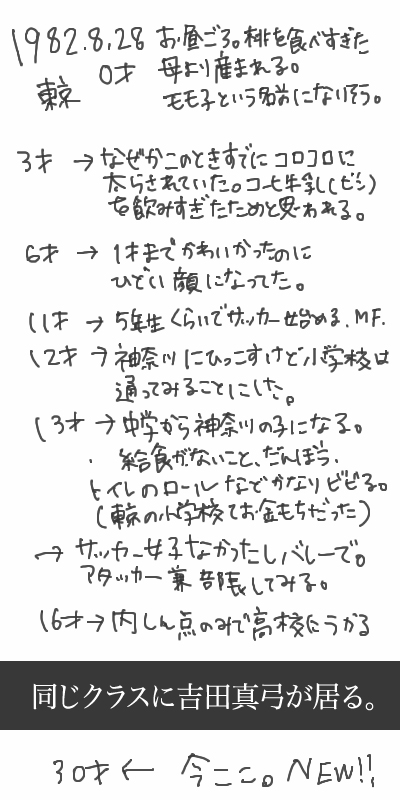 1982.8.28 お昼ごろ。桃を食べすぎた
東京 0才 母より産まれる。
モモ子という名前になりそう。
3才 → なぜかこのときすでにコロコロに
太らされていた。コーヒ牛乳(ビン)
を飲みすぎたためと思われる。
6才 → 1才までかわいかったのに
ひどい顔になってた。
11才 → 5年生くらいでサッカー始める、MF.
12才 → 神奈川にひっこすけど小学校は
通ってみることにした。
13才 → 中学から神奈川の子になる。
・給食がないこと、だんぼう、
トイレのロールなどでかなりビビる。
(東京の小学校てお金もちだった)
→ サッカー女子なかったしバレーで。
アタッカー兼部長してみる。
16才→ 内しん点のみで高校にうかる
同じクラスに吉田真弓が居る。
30才 ← 今ここ。NEW!!